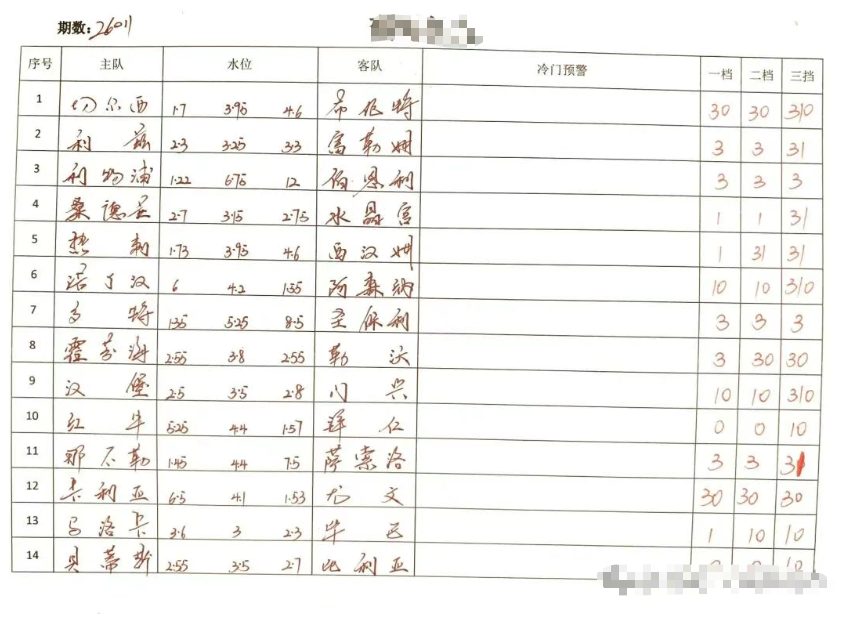 期数: 26011
序号 主队 水位 客队 冷门预警 一档 二档 三挡
1 切尔西 1.7 3.95 4.6 布伦特 30 30 310
2 利兹 2.3 3.25 3.3 富勒姆 3 3 31
3 利物浦 1.22 6.75 12 伯恩利 3 3 3
4 桑德兰 2.7 3.15 2.75 水晶宫 1 1 31
5 热刺 1.73 3.95 4.6 西汉姆 1 31 31
6 诺丁汉 6 4.2 1.55 阿森纳 10 10 310
7 多特 1.35 5.25 8.5 圣保利 3 3 3
8 霍芬海 2.55 3.8 2.55 勒沃 3 30 30
9 汉堡 2.5 3.5 2.8 门兴 10 10 310
10 红牛 5.25 4.4 1.57 拜仁 0 0 10
11 那不勒 1.45 4.4 7.5 萨索洛 3 3 31
12 卡利亚 6.5 4.1 1.53 尤文 30 30 30
13 马洛卡 3.6 3 2.3 毕巴 1 10 10
14 贝蒂斯 2.55 3.5 2.7 比利亚 10